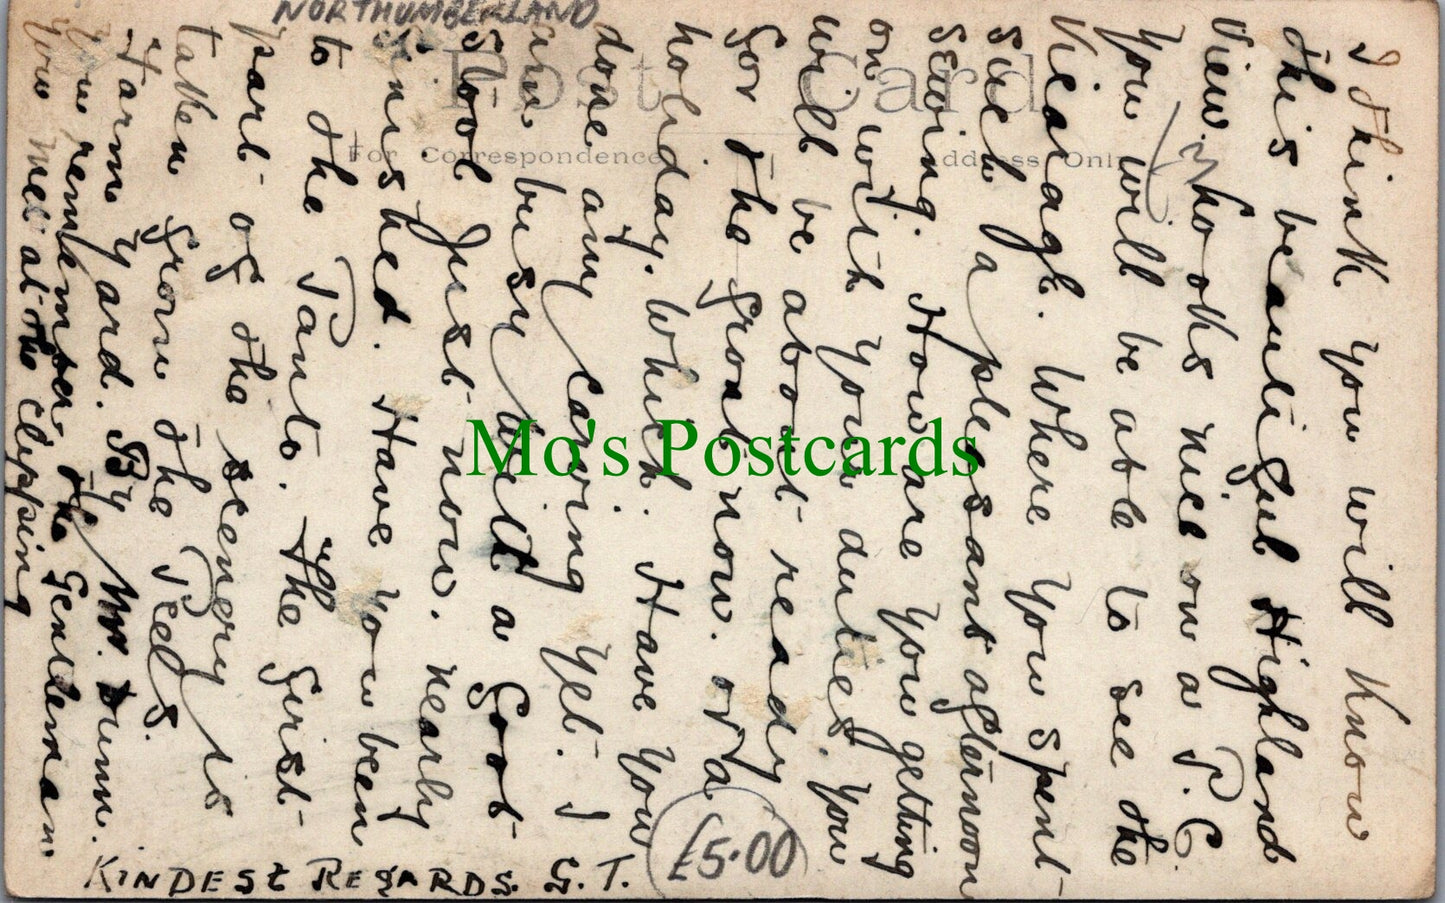 NORTHUMBERLAND
Post Card
For Correspondence
Address Only
I think you will know
this beautiful Highland
View. Looks nice on a P.C
You will be able to see the
Kiearagh. Where you spent
such a pleasant afternoon
sewing. How are you getting
on with your duties. You
will be about ready
for the front now. or a
holiday. Which. Have you
done any Carving yet. I
am busy with a foot
stool Just now. nearly
finished. Have you been
to the Panto. "The first
part of the scenery is
taken from the Peels.
Farm yard. By Mr. Dunn.
You remember, the Gentleman
you met at the clipping
KINDEST REGARDS. G.T.
£5.00
Mo's Postcards